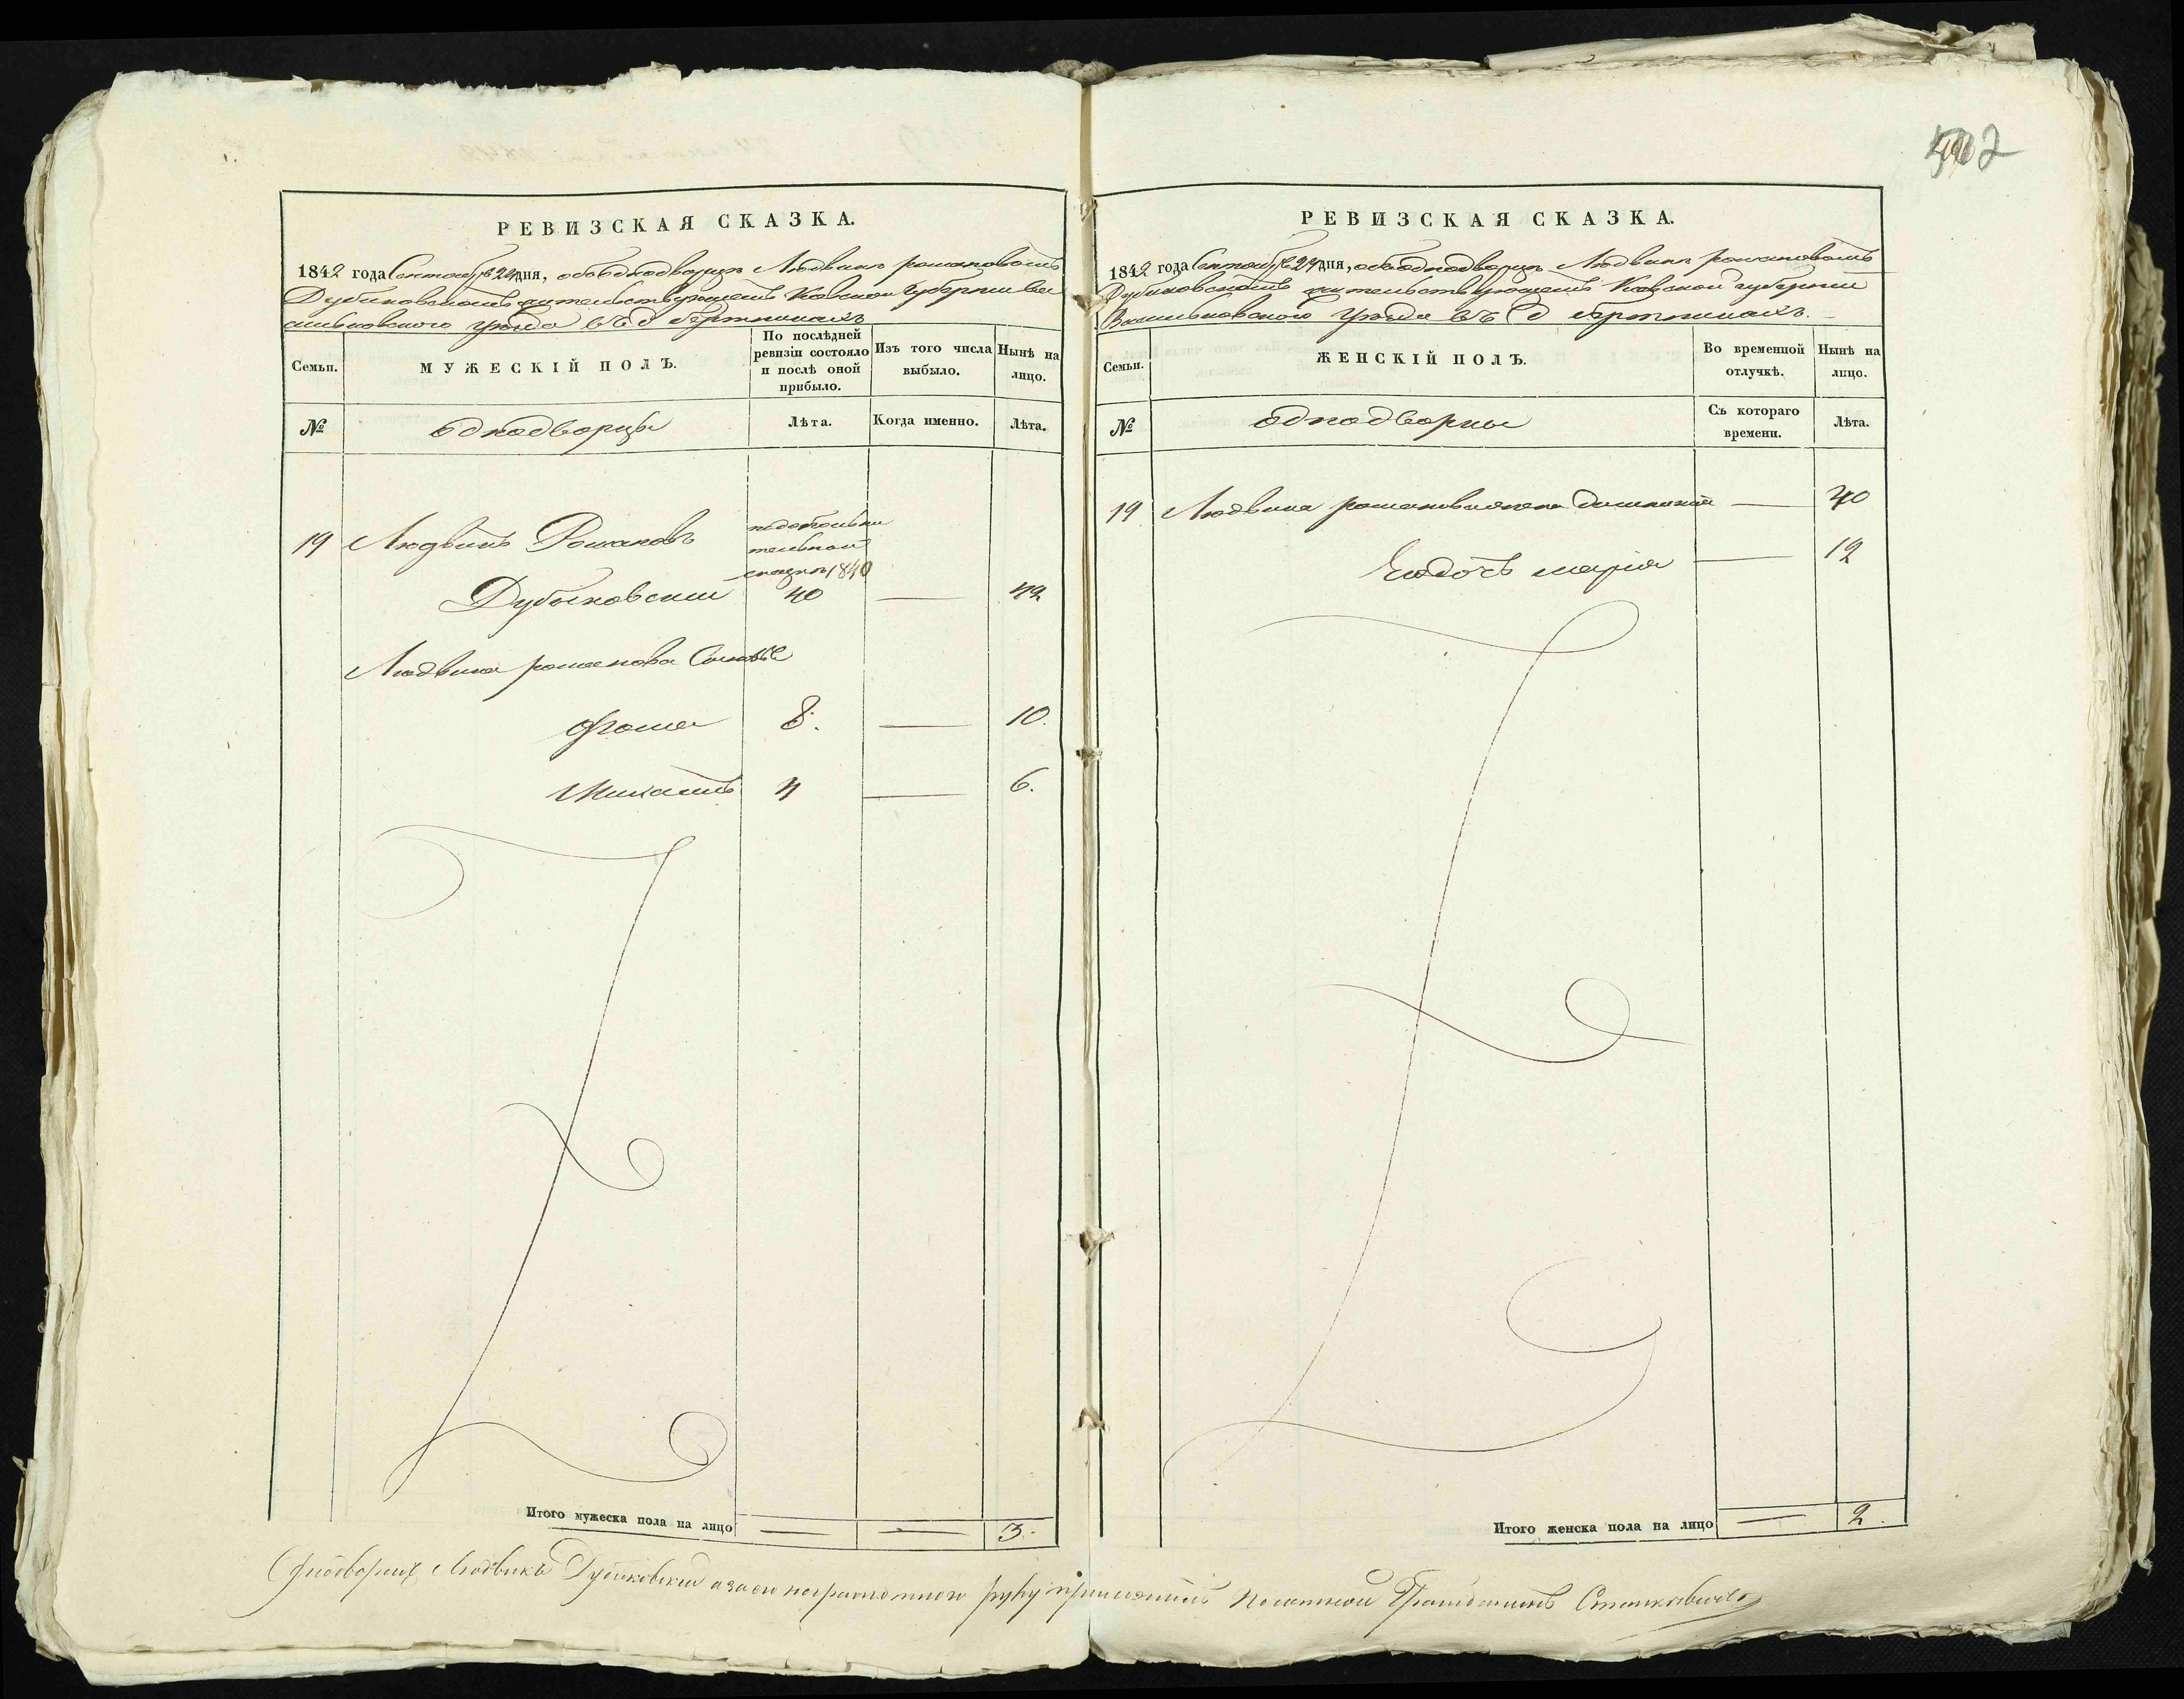 РЕВИЗСКАЯ СКАЗКА.
1842 года Сентября 24 дня, объ однодворцѣ Людвикѣ романовомъ
Дубиковскомъ жительствующемъ Киевской губернии Ва
сильковского уезда въ с
Семьи.
МУЖЕСКІЙ ПОЛЪ.
По послѣдней ревизіи состояло и послѣ оной прибыло.
Изъ того числа выбыло.
Нынѣ на лицо.
№
однодворцы
Лѣта.
Когда именно.
Лѣта.
подополни
тельной
сказки 1840
19 Людвикъ Романовъ
Дубиковский 40 — 42
Людвика романова Сыновья
Фома 8. — 10.
Михаилъ 4 — 6.
Итого мужеска пола на лицо — — 3.
502
РЕВИЗСКАЯ СКАЗКА.
1842 года Сентября 24 дня, объ однодворцѣ Людвикѣ романовомъ
Дубиковскомъ жительствующемъ Киевской губернии
Васильковского уезда въ с
Семьи.
ЖЕНСКІЙ ПОЛЪ.
Во временной отлучкѣ.
Нынѣ на лицо.
№
однодворцы
Съ котораго времени.
Лѣта.
19 Людвика романова жена — 40
дочь мария — 12
Итого женска пола на лицо — 2.
Однодворец Людвикъ Дубиковский а за его неграмотного руку приложилъ Гражданинъ Станкевичъ